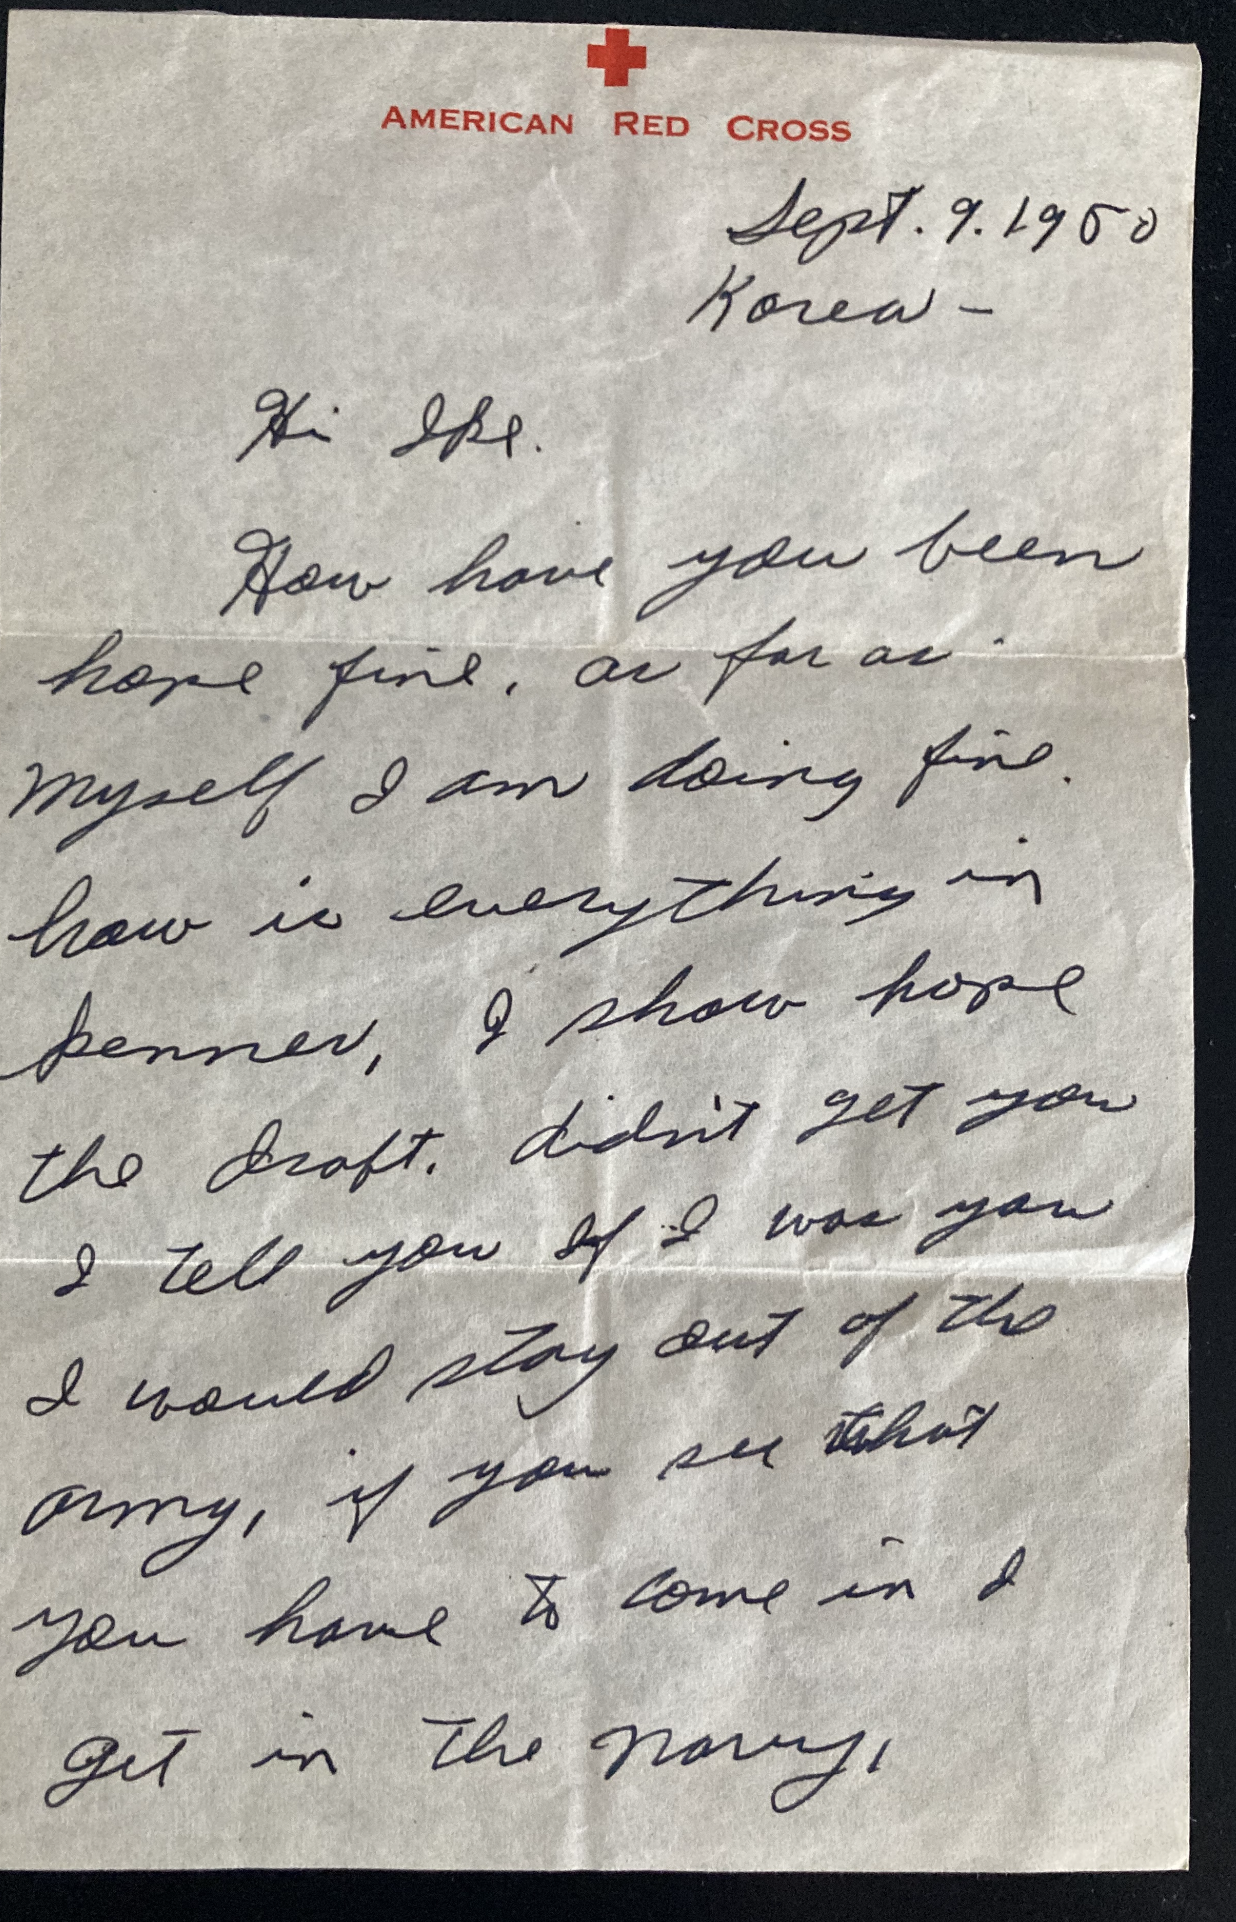 AMERICAN RED CROSS
Sept. 9. 1950
Korea -
Hi Ike.
How have you been
hope fine. as far as
myself I am doing fine.
how is everything in
Kenner, I show hope
the draft. didn't get you
I tell you If I was you
I would stay out of the
army, if you see that
you have to come in I
get in the navy,